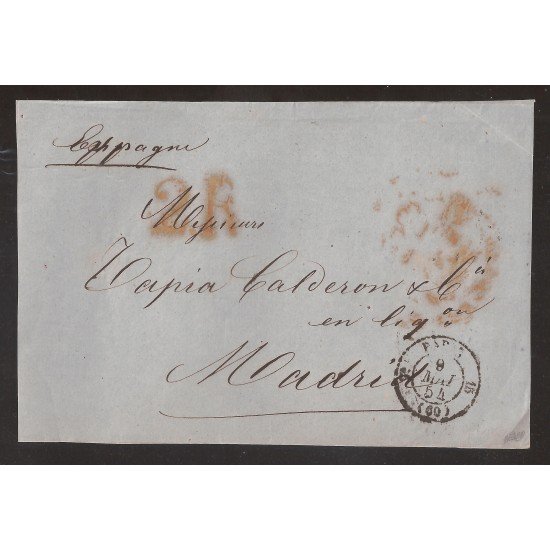 Espagne
2R
Messieurs
Tapia Calderon & Cia
en liqon
Madrid
PARIS
9
MAI
54
(60)
15